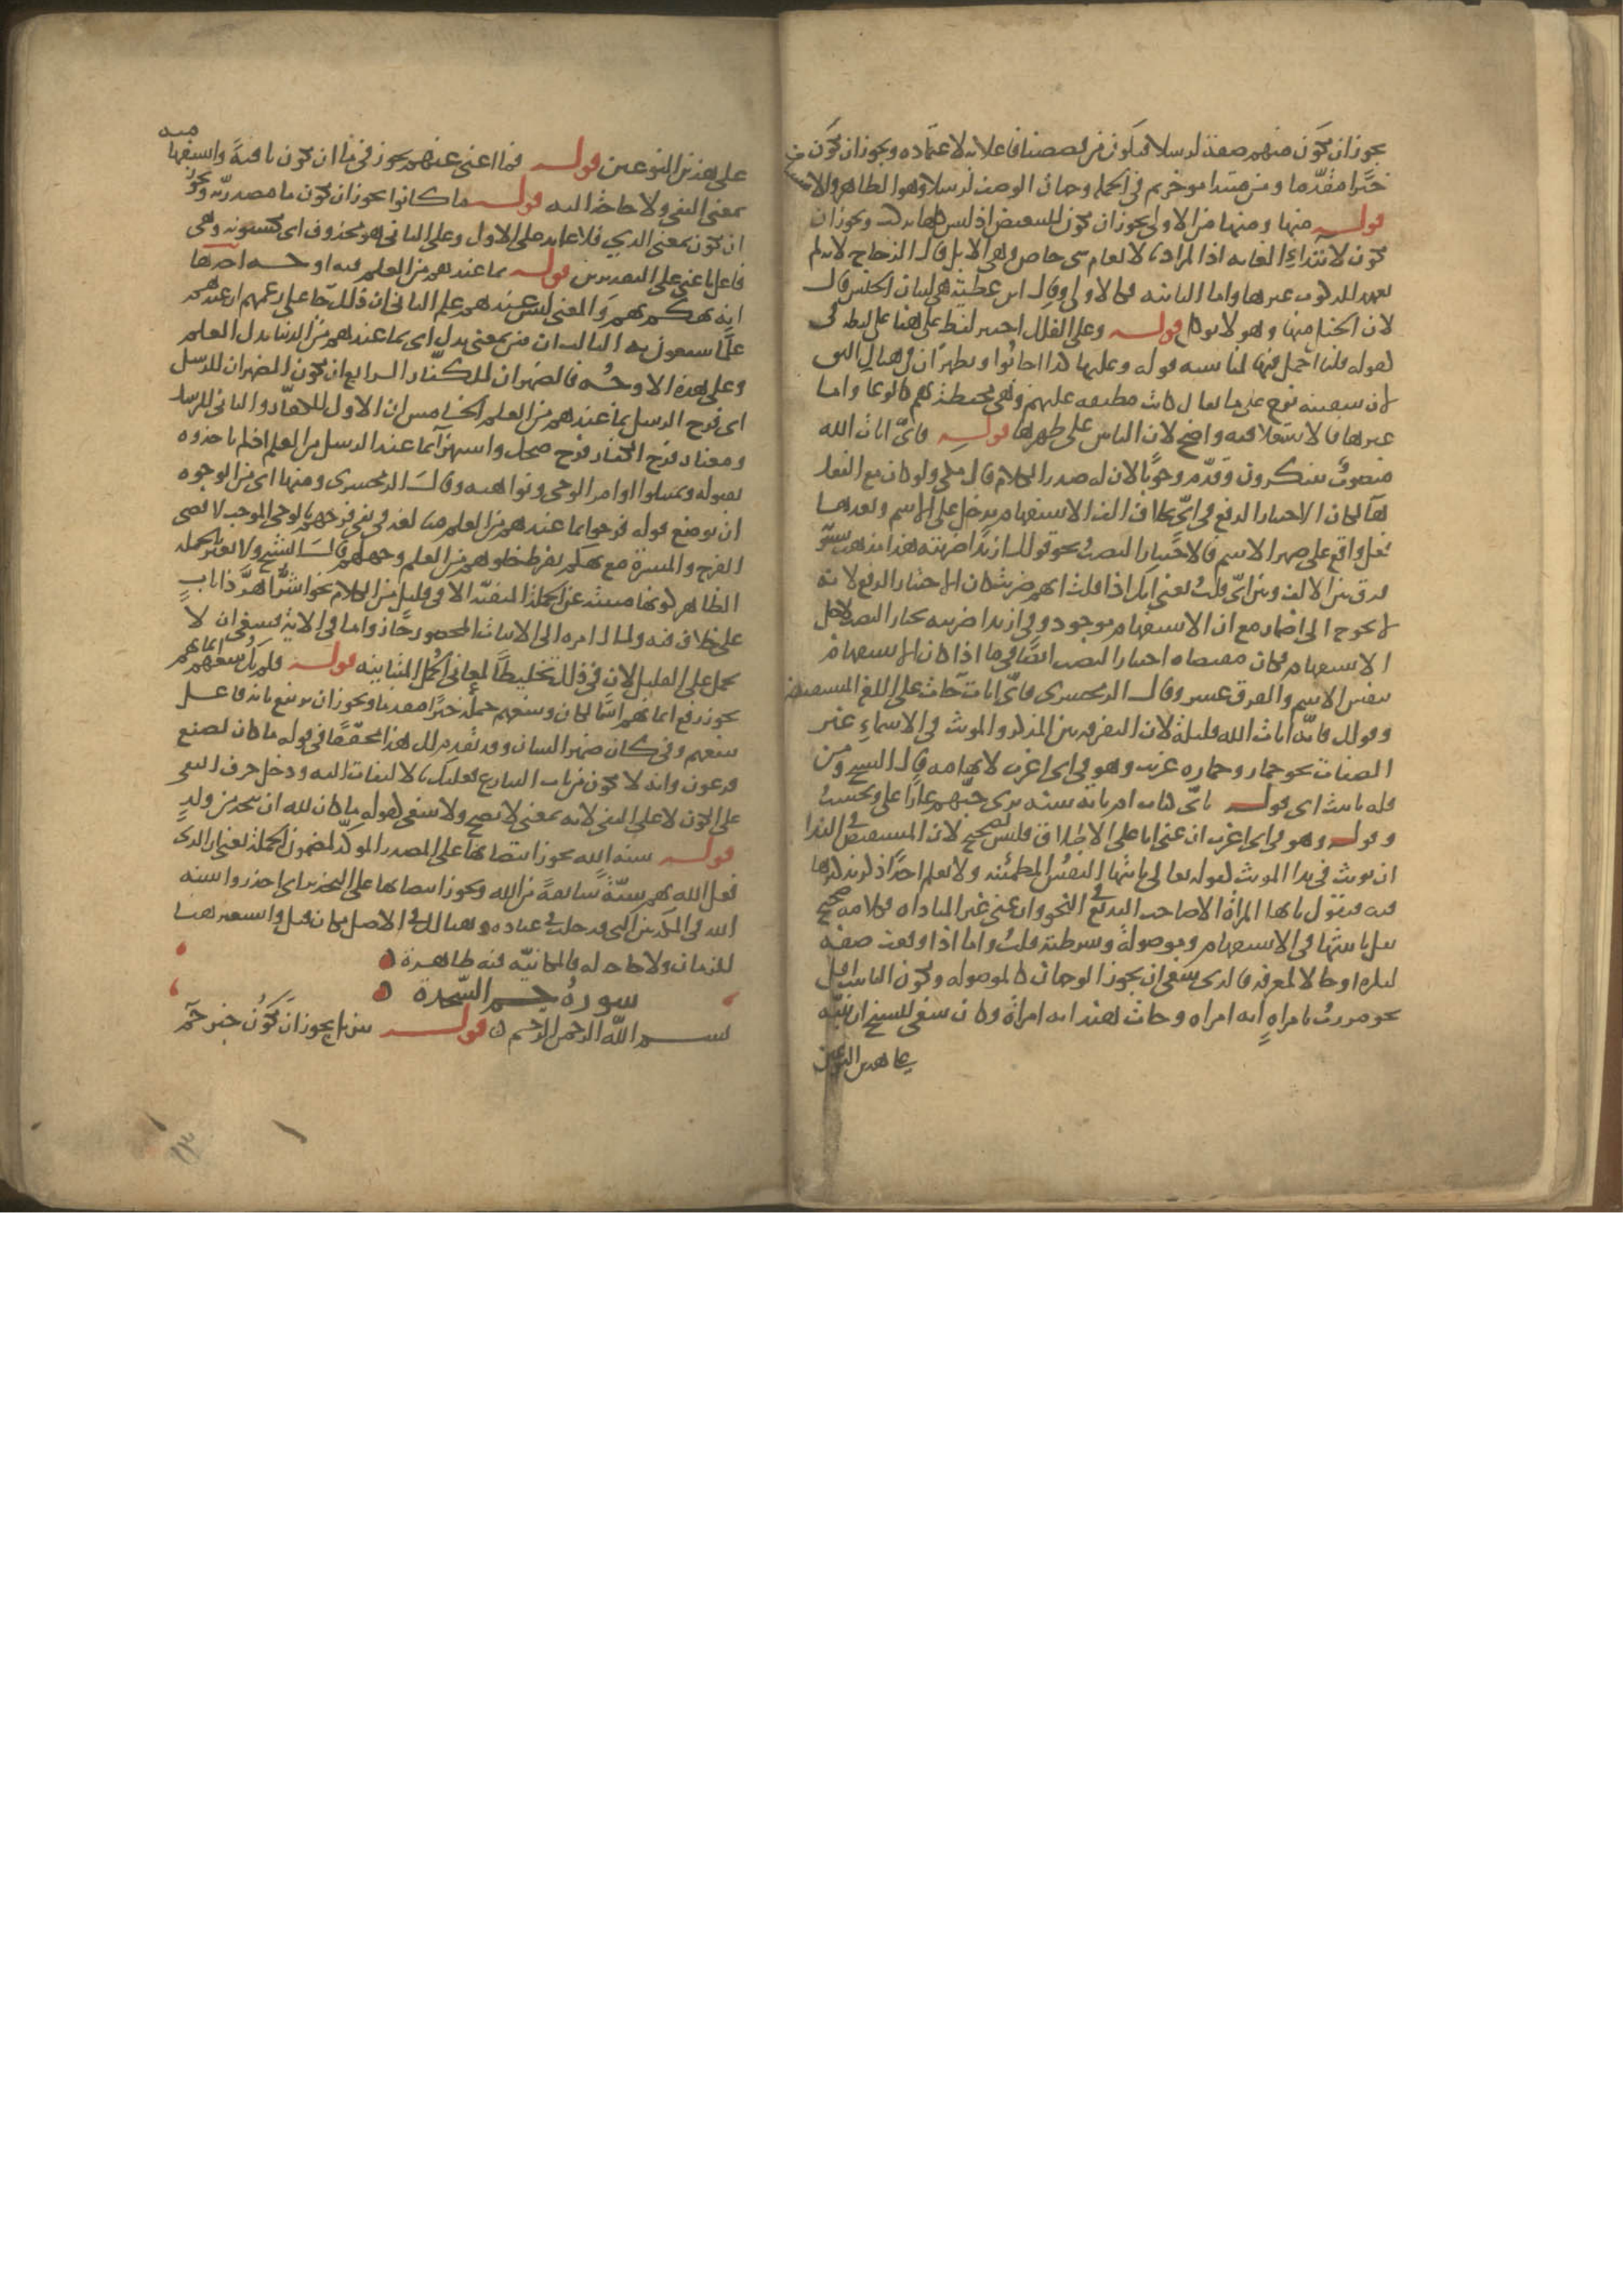 يجوز ان يكون منهم صفة لرسلا فيكون من قصصنا فاعلا به لاعتماده ويجوز ان يكون من
خبرا مقدما ومن مبتدا موخر ثم في الجملة وجهان الوصف لرسلا وهو الظاهر والاستيناف
قوله منها ومنها من الاولى يجوز ان تكون للتبعيض اذ ليس كلها تركب ويجوز ان
تكون لابتداء الغاية اذ المراد بالانعام شي خاص وهي الابل قال الزجاج لانه لم
يعهد المركوب غيرها واما الثانية فكالاولى وقال ابن عطية هي لبيان الجنس قال
لان الخيل منها وهو لا يوكل قوله وعلى الفلك اختير لفظ على هنا على لفظة في
كقوله قلنا احمل فيها لمناسبة قوله وعليها كذا اجابوا ويظهر ان في هنالك اليق
لان سفينة نوح على ما يقال كانت مطبقة عليهم وهي محيطة بهم كالوعا واما
غيرها فالاستعلا فيه واضح لان الناس على ظهرها قوله فاي ايات الله
منصوب بتنكرون وقدم وجوبا لان له صدر الكلام قال مكي ولو كان مع الفعل
ها لكان الاختيار الرفع في اي بخلاف الف الاستفهام يدخل على الاسم وبعدها
فعل واقع على ضمير الاسم فالاختيار النصب نحو قولك ازيدا ضربته هذا مذهب سيبويه
فرق بين الالف وبين اي قلت يعني انك اذا قلت ايهم ضربت كان الاختيار الرفع لانه
لا يحوج الى اضمار مع ان الاستفهام موجود وفي ازيدا ضربته يختار النصب لاجل
الاستفهام فكان مقتضاه اختيار النصب ايضا فيما اذا كان الاستفهام
بنفس الاسم والفرق عسر وقال الزمخشري فاي ايات جات على اللغة المستفيضة
وقولك فاية ايات الله قليلة لان التفرقة بين المذكر والمونث في الاسماء غير
الصفات نحو حمار وحمارة غريب وهو في اي اغرب لابهامه قال الشيخ ومن
قلة تانيث اي قوله باي كتاب ام باية سنة ترى حبهم عارا علي وتحسب
وقوله وهو في اي اغرب ان عنى ايا على الاطلاق فليس بصحيح لان المستفيض في الندا
ان يونث في ندا المونث كقوله تعالى يا ايتها النفس المطمئنة ولا نعلم احدا ذكر تذكيرها
فيه فيقول يا ايها المراة الا صاحب البديع في النحو وان عنى غير المناداة فكلامه صحيح
يقل تانيثها في الاستفهام وموصولة وشرطية قلت واما اذا وقعت صفة
لنكرة او حالا لمعرفة فالذي ينبغي ان يجوز الوجهان كالموصولة ويكون التانيث اقل
نحو مررت بامراة اية امراة وجات هند اية امراة وكان ينبغي للشيخ ان ينبه
على هذين النوعين
على هذين النوعين قوله فما اغنى عنهم يجوز في ما ان تكون نافية واستفهامية
بمعنى النفي ولا حاجة اليه قوله ما كانوا يجوز ان تكون ما مصدرية ويجوز
ان تكون بمعنى الذي فلا عايد على الاول وعلى الثاني هو محذوف اي يكسبونه وهي
فاعل باغنى على التقديرين قوله بما عندهم من العلم فيه اوجه احدها
انه تهكم بهم والمعنى ليس عندهم علم الثاني ان ذلك جا على زعمهم ان عندهم
علما ينتفعون به الثالث ان من بمعنى بدل اي بما عندهم من الدنيا بدل العلم
وعلى هذه الاوجه فالضميران للكفار الرابع ان يكون الضميران للرسل
اي فرح الرسل بما عندهم من العلم الخامس ان الاول للكفار والثاني للرسل
ومعناه فرح الكفار فرح ضحك واستهزا بما عند الرسل من العلم اذ لم ياخذوه
بقبوله ويمتثلوا اوامر الوحي ونواهيه وقال الزمخشري ومنها اي من الوجوه
ان يوضع قوله فرحوا بما عندهم من العلم مبالغة في نفي فرحهم بالوحي الموجب لاقصى
الفرح والمسرة مع تهكم بفرط خلوهم من العلم وجهلهم قال الشيخ ولا يعبر بالجملة
الظاهر كونها مثبتة عن الجملة المنفية الا في قليل من الكلام نحو شر اهر ذا ناب
على خلاف فيه ولما ال امره الى الاثبات المحصور جاز واما في الاية فينبغي ان لا
يحمل على القليل لان في ذلك تخليطا لمعاني الجمل المتباينة قوله فلم يك ينفعهم ايمانهم
يجوز رفع ايمانهم اسما لكان وينفعهم جملة خبرا مقدما ويجوز ان يرتفع بانه فاعل
ينفعهم وفي كان ضمير الشان وقد تقدم لك هذا محققا في قوله ما كان يصنع
فرعون وانه لا يكون من باب التنازع فعليك بالالتفات اليه ودخل حرف النفي
على الكون لا على النفي لانه بمعنى لا يصح ولا ينبغي كقوله ما كان لله ان يتخذ من ولد
قوله سنة الله يجوز انتصابها على المصدر الموكد لمضمون الجملة يعني ان الذي
فعل الله بهم سنة سابقة من الله ويجوز انتصابها على التحذير اي احذروا سنة
الله في المكذبين التي قد خلت في عباده وهنالك في الاصل مكان قيل واستعير هنا
للزمان ولا حاجة له فالمكانية فيه ظاهرة
سورة حم السجدة
بسم الله الرحمن الرحيم قوله تنزيل يجوز ان يكون خبر حم